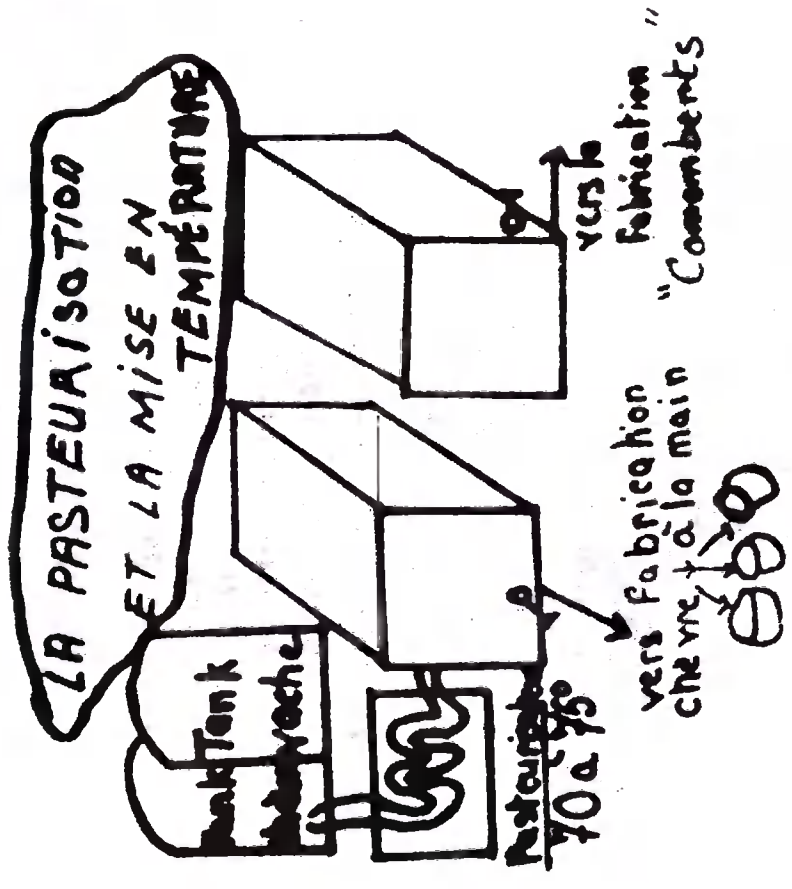 LA PASTEURISATION
ET LA MISE EN
TEMPÉRATURE
Tank
vache
70 à 75°
vers Fabrication
chèvre à la main
vers la
Fabrication
"Camemberts"